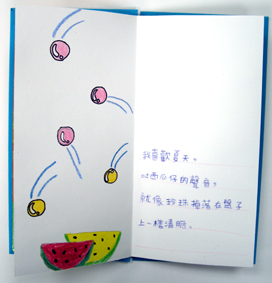 我喜歡夏天。
吐西瓜仔的聲音，
就像珍珠掉落在盤子
上一樣清脆。